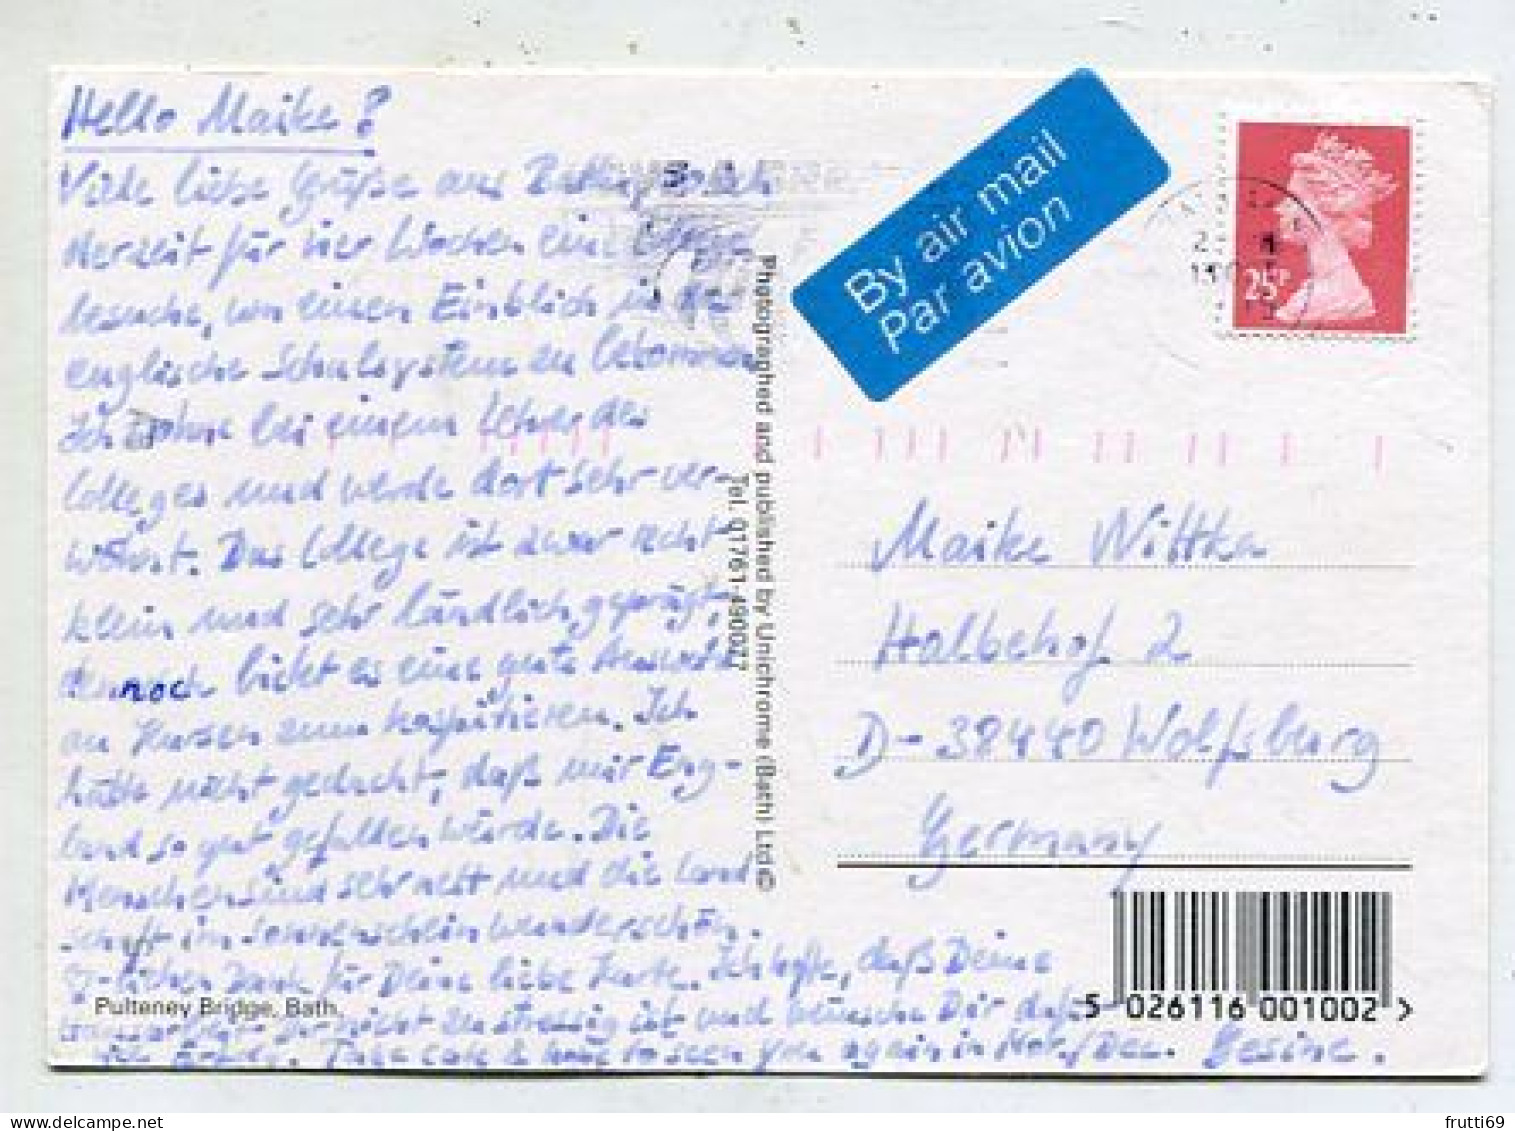 Hello Maike!
Viele liebe Grüße aus Bath, wo ich
derzeit für vier Wochen eine College
besuche, um einen Einblick in das
englische Schulsystem zu bekommen.
Ich wohne bei einem Lehrer des
Colleges und werde dort sehr ver-
wöhnt. Das College ist zwar recht
klein und sehr ländlich geprägt,
dennoch bietet es eine gute Auswahl
an Kursen zum hospitieren. Ich
hätte nicht gedacht, daß mir Eng-
land so gut gefallen würde. Die
Menschen sind sehr nett und die Land
schaft im Sonnenschein wunderschön.
lichen Dank für Deine liebe Karte. Ich hoffe, daß Deine
nicht zu stressig ist und wünsche Dir dafür
viel Erfolg. Take care & hope to see you again in Nov./Dec. Gesine.
Pulteney Bridge, Bath.
Photographed and published by Unichrome (Bath) Ltd©
Tel. 01761-490077
By air mail
Par avion
25P
Maike Wittka
Halbehof 2
D-38440 Wolfsburg
Germany
5 026116 001002 >
frutti69